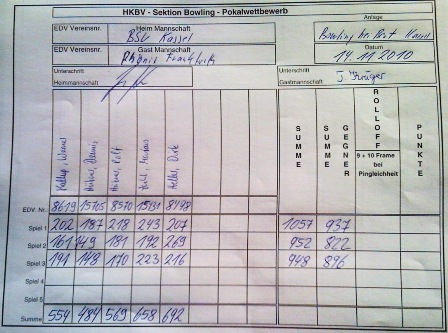 HKBV - Sektion Bowling - Pokalwettbewerb
EDV Vereinsnr. Heim Mannschaft Anlage
BSV Kassel
EDV Vereinsnr. Gast Mannschaft Datum
Phönix Frankfurt 14.11.2010
Unterschrift Heimmannschaft Unterschrift Gastmannschaft J. Krüger
SUMME SUMME GEGNER ROLLOFF PUNKTE
9 + 10 Frame bei Pingleichheit
EDV. Nr. 8619 15705 8570 15131 8498
Spiel 1 202 187 218 243 207 1057 937
Spiel 2 161 149 181 192 269 952 822
Spiel 3 191 148 170 223 216 948 896
Spiel 4
Spiel 5
Summe 554 484 569 658 692